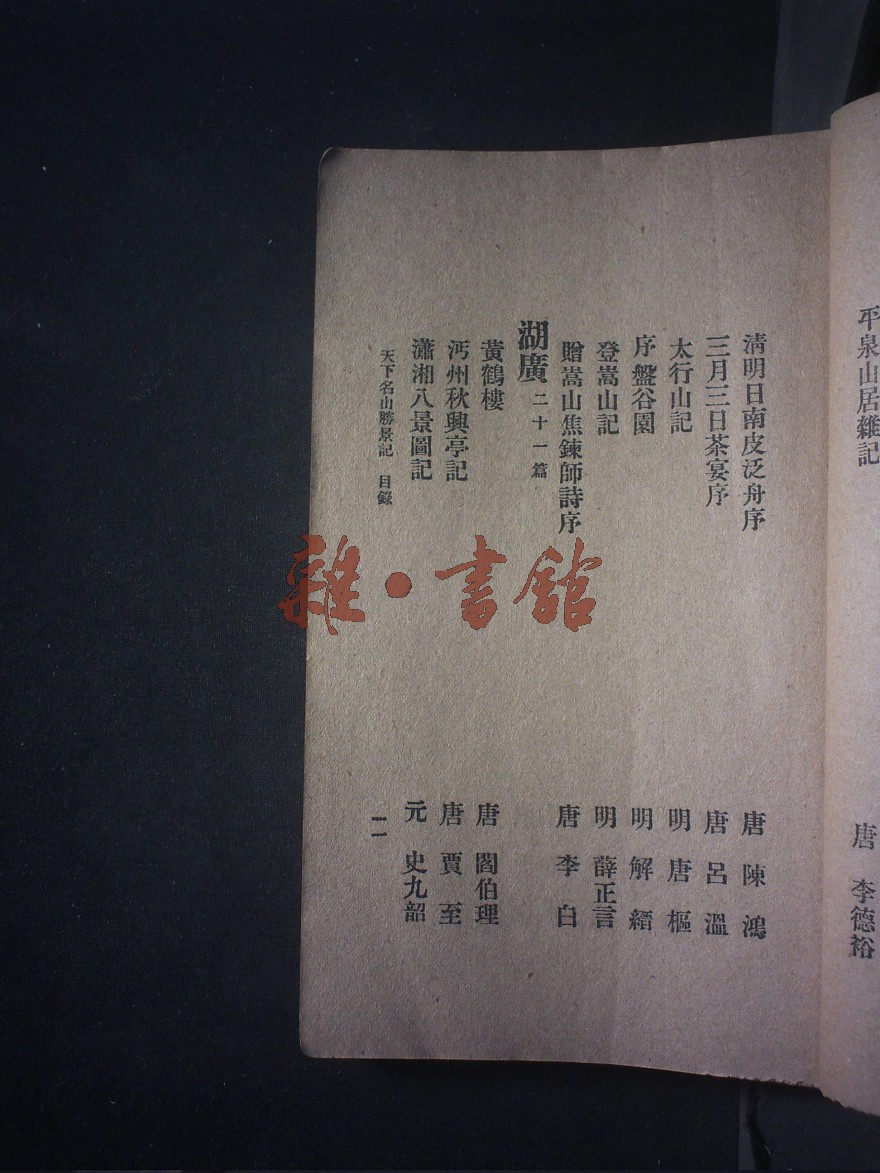 平泉山居雜記　唐　李德裕
淸明日南皮泛舟序　唐　陳鴻
三月三日茶宴序　唐　呂溫
太行山記　明　唐樞
序盤谷園　明　解縉
登嵩山記　明　薛正言
贈嵩山焦鍊師詩序　唐　李白
湖廣　二十一篇
黃鶴樓　唐　閻伯理
沔州秋興亭記　唐　賈至
瀟湘八景圖記　元　史九韶
天下名山勝景記　目錄　一一
雜·書館